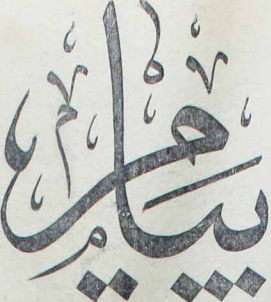 پیام